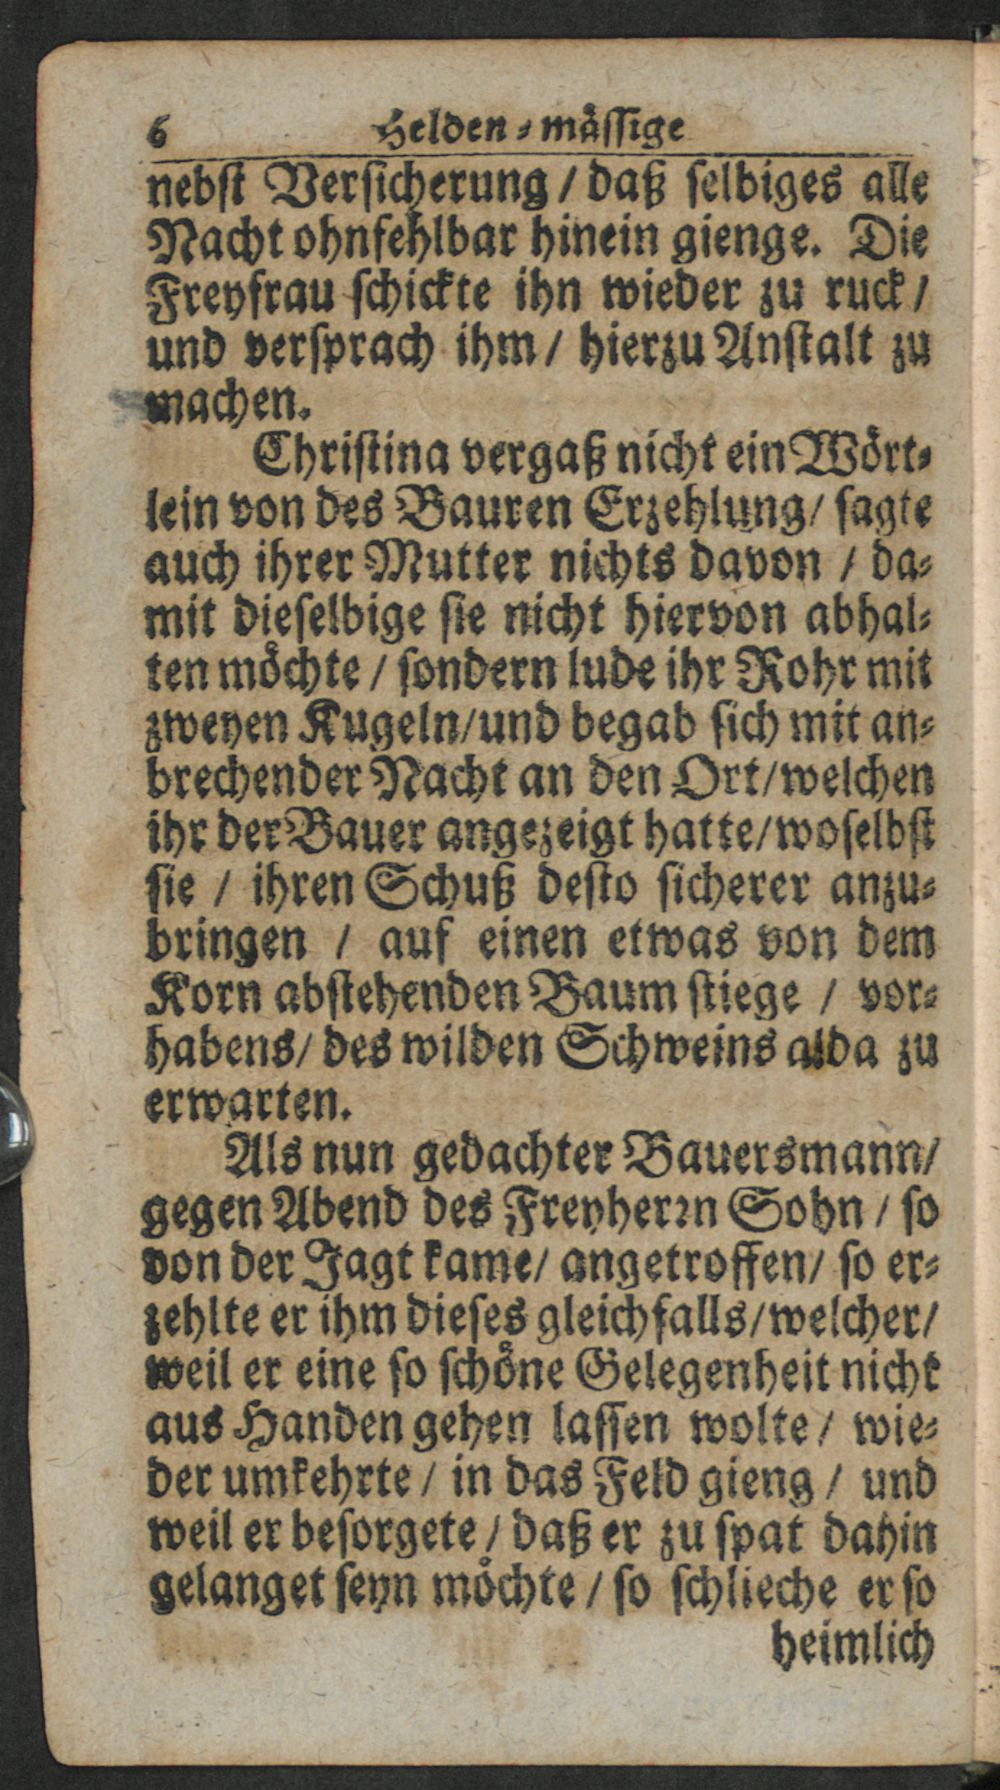 6 Helden-mässige
nebst Versicherung / daß selbiges alle
Nacht ohnfehlbar hinein gienge. Die
Freyfrau schickte ihn wieder zu ruck /
und versprach ihm / hierzu Anstalt zu
machen.
Christina vergaß nicht ein Wört-
lein von des Bauren Erzehlung / sagte
auch ihrer Mutter nichts davon / da-
mit dieselbige sie nicht hiervon abhal-
ten möchte / sondern lude ihr Rohr mit
zweyen Kugeln / und begab sich mit an-
brechender Nacht an den Ort / welchen
ihr der Bauer angezeigt hatte / woselbst
sie / ihren Schuß desto sicherer anzu-
bringen / auf einen etwas von dem
Korn abstehenden Baum stiege / vor-
habens / des wilden Schweins alda zu
erwarten.
Als nun gedachter Bauersmann /
gegen Abend des Freyherrn Sohn / so
von der Jagt kame / angetroffen / so er-
zehlte er ihm dieses gleichfalls / welcher /
weil er eine so schöne Gelegenheit nicht
aus Handen gehen lassen wolte / wie-
der umkehrte / in das Feld gieng / und
weil er besorgete / daß er zu spat dahin
gelanget seyn möchte / so schlieche er so
heimlich